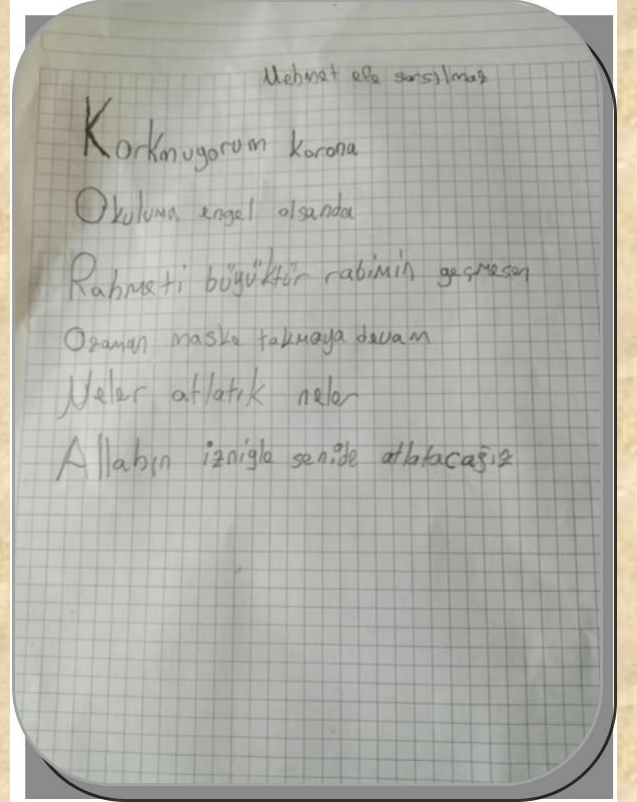 Mehmet efe sarsılmaz
Korkmuyorum korona
Okuluma engel olsanda
Rahmeti büyüktür rabimin geçmesen
Ozaman maske takmaya devam
Neler atlatık neler
Allahın izniyle senide atlatacağız